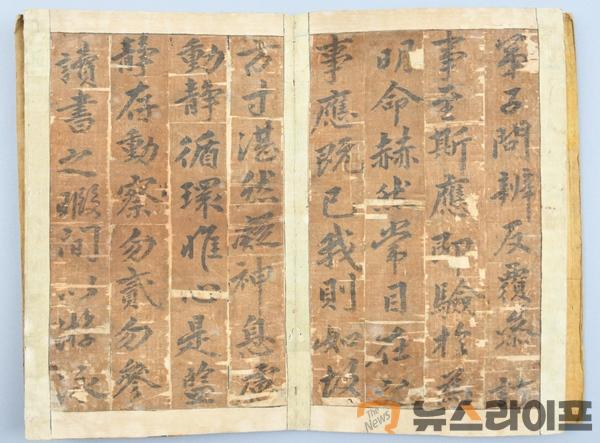 弟子問辨反覆參訂
事至斯應則驗於爲
明命赫然常目在之
事應既已我則如故
方寸湛然凝神息慮
動靜循環惟心是監
靜存動察勿貳勿參
讀書之暇間以游泳
The News
뉴스라이프